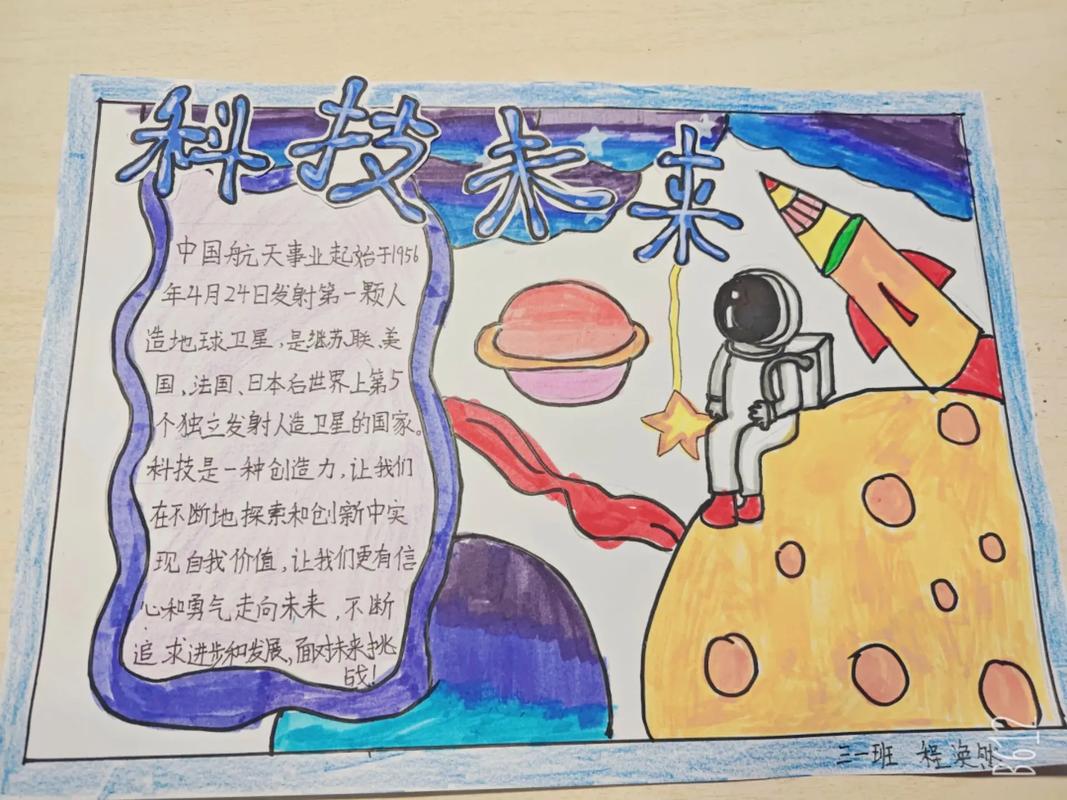 科技未来
中国航天事业起始于1956
年4月24日发射第一颗人
造地球卫星,是继苏联、美
国,法国、日本后世界上第5
个独立发射人造卫星的国家。
科技是一种创造力,让我们
在不断地探索和创新中实
现自我价值,让我们更有信
心和勇气走向未来,不断
追求进步和发展,面对未来挑
战!
三一班 程